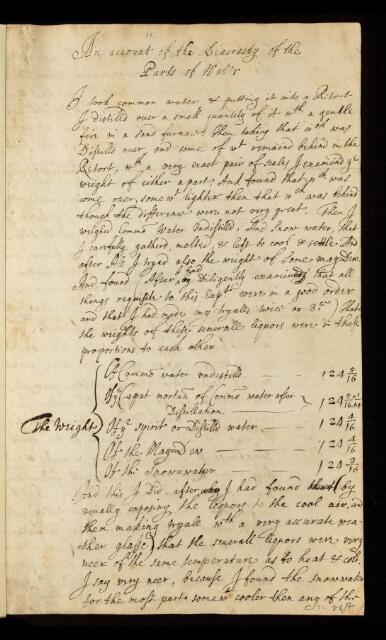 An account of the Diversity of the
Parts of Watr
I took common water & putting it into a Retort
I distilled over a small quantity of it wth a gentle
fire in a sand furnace then taking that wch was
Distilled over, and some of wt remained behind in the
Retort, wth a very exact pair of scales I examined ye
weight of either apart; And found that wch was
come over, somewt lighter then that wch was behind
though the difference were not very great. Then I
weighed Common Water Undistilled, And Snow water, that
I carefully gathered, melted & left to cool & settle And
after All I tryed also the weight of some MayDew.
And found (After I had Diligently examined that all
things requisite to this Expt were in a good order
and that I had made my tryals twice or 3ce) That
the weights of these severall liquors were in these
proportions to each other
The Weight
Of Commō water undistilld — 124 5/16
Of ye Caput mortuū of Commō water after
Distillation 124
Of ye spirit or Distilld water — 124 4/16
Of the MayDew — 124 4/16
Of the Snowwater — 124
And this I Did, after I had found (by
equally exposing the liquors to the cool air, and
then making tryale wth a very accurate wea-
ther glasse) that the severall liquors were very
neer of the same temperature as to heat & cold,
I say very neer, because I found the snowwater
for the most part somewt cooler then any of the
rest